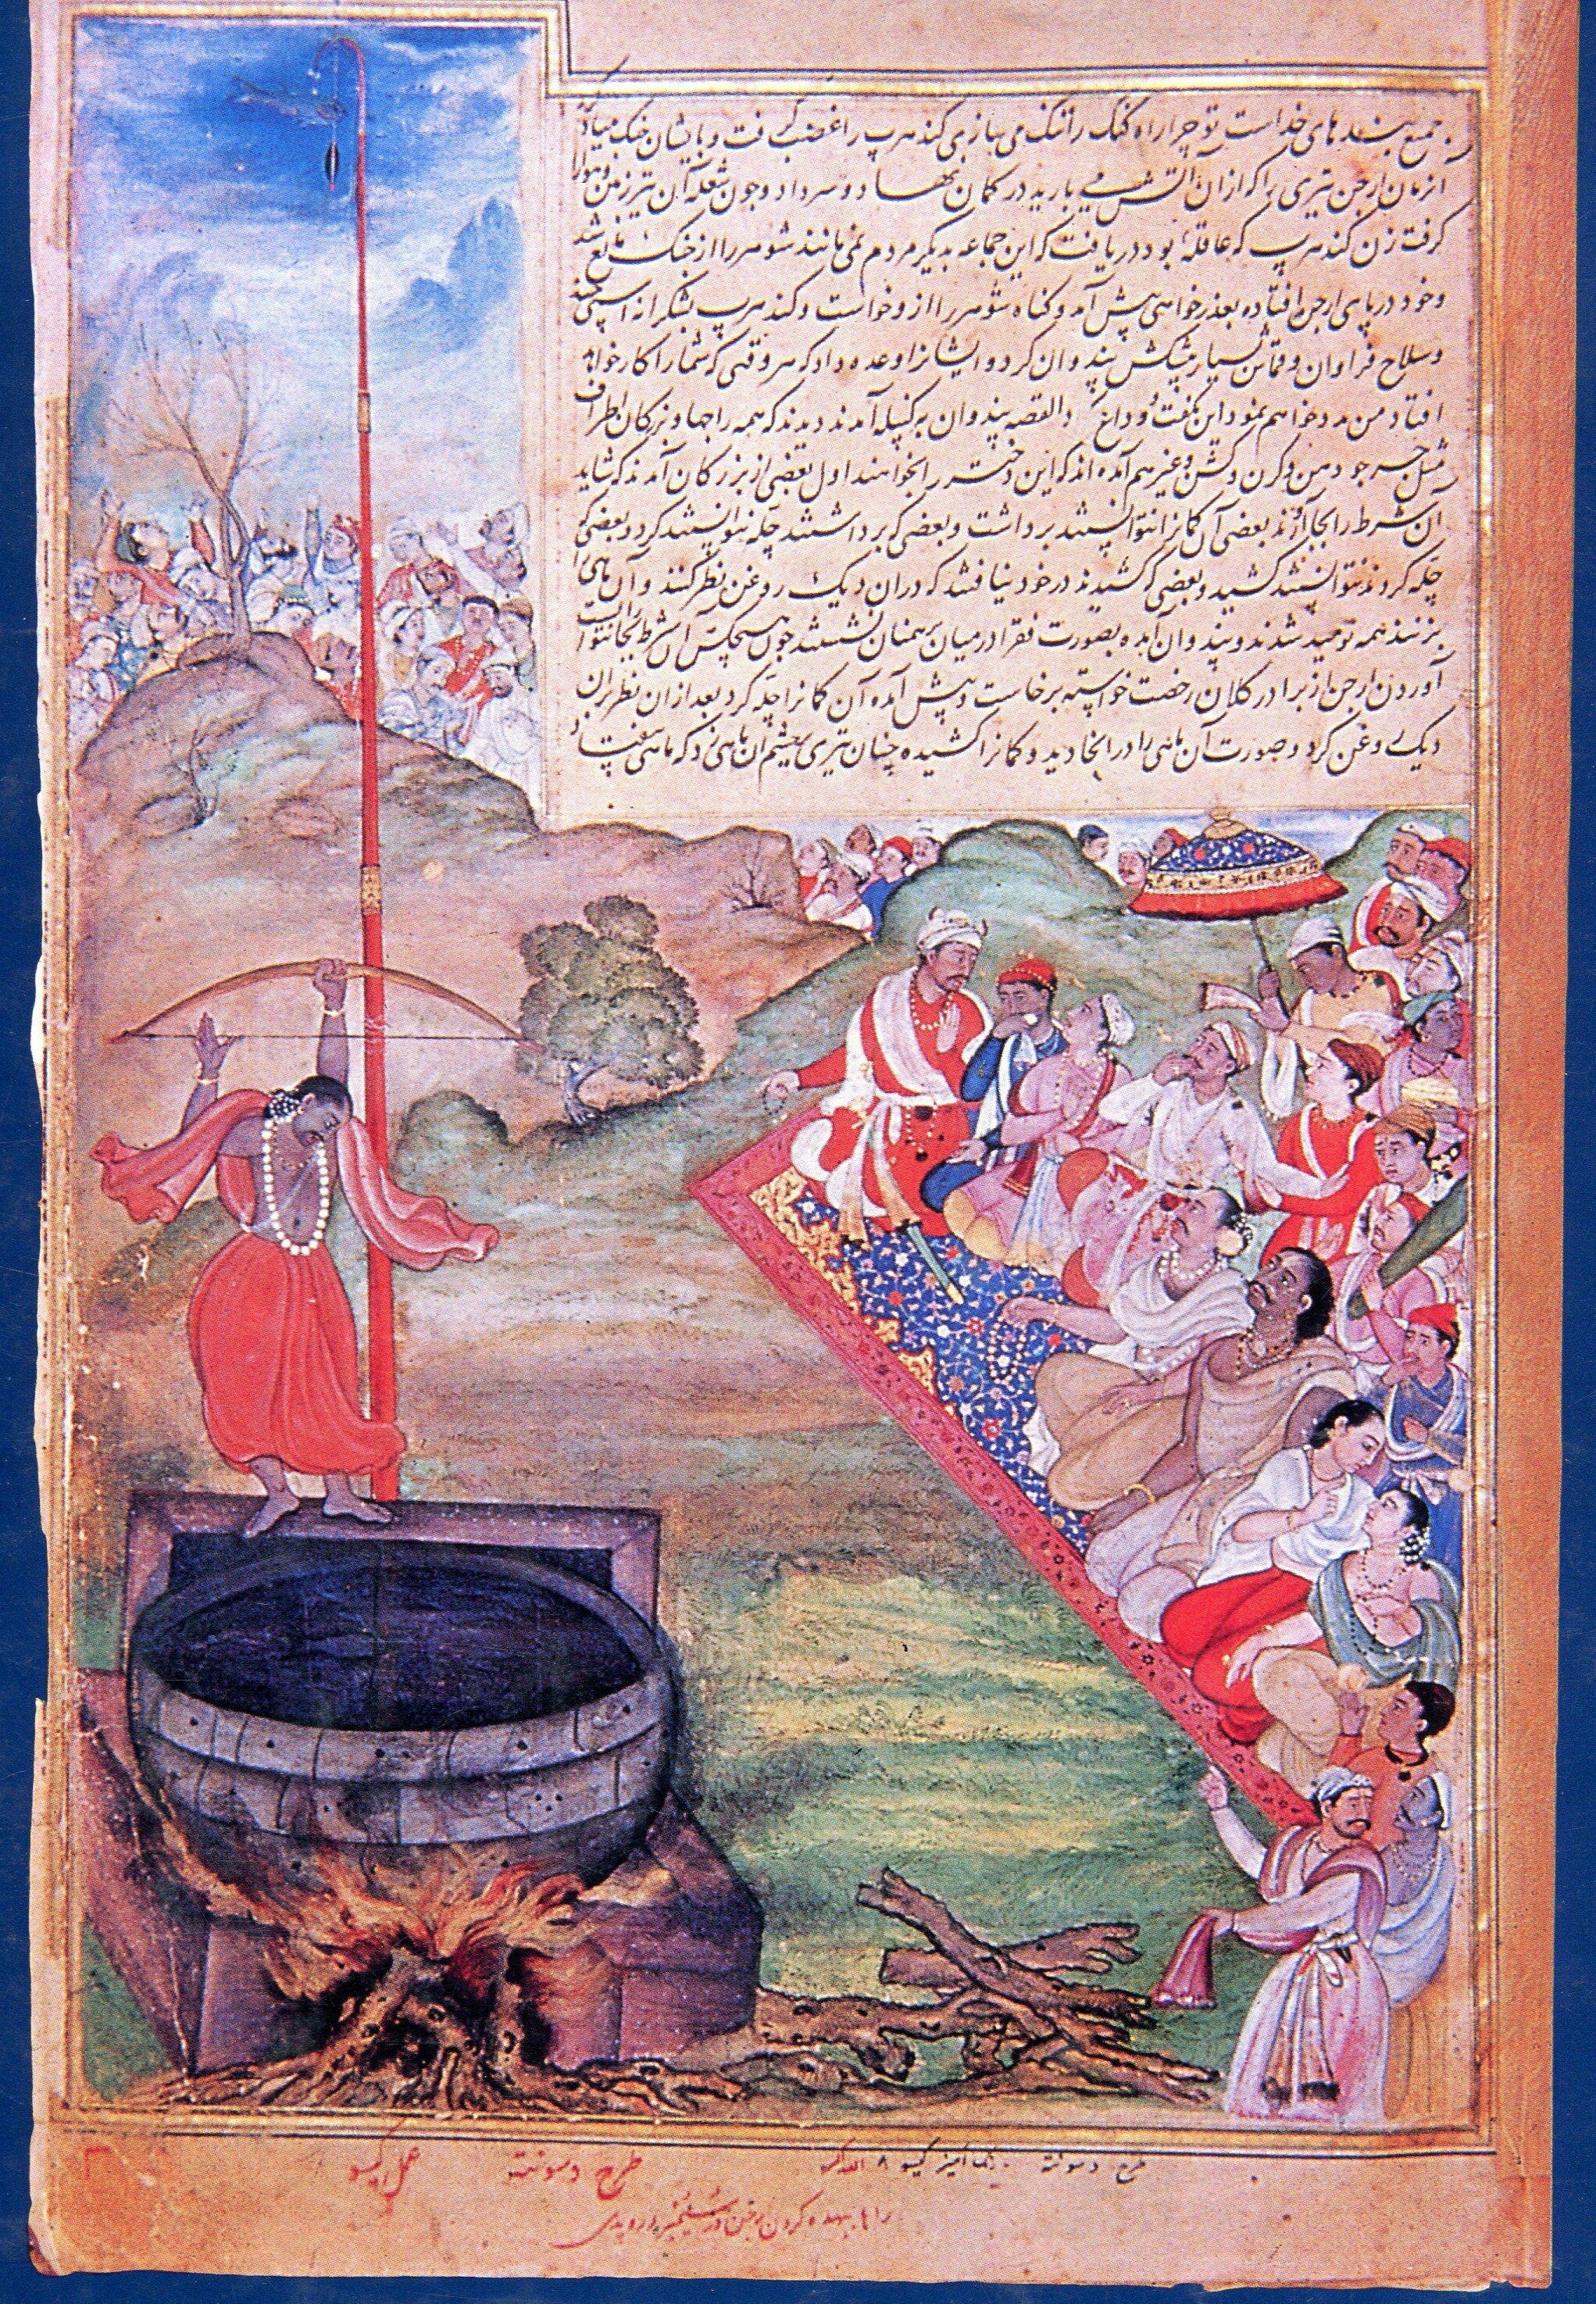 جمیع بنده های خداست تو چرا راه کنک را تنک می سازی کندهرپ را غضب گرفت و بایشان جنک بنیاد
آنزمان ارجن تیری را که ازان آتش می بارید در کمان نهاد و سر داد و چون شعله آن تیر زمین و هوا را
کرفت زن کندهرپ که عاقله بود دریافت که این جماعه بدیگر مردم نمی مانند شوهر را از جنک مانع شد
و خود در پای ارجن افتاده بعذرخواهی پیش آمد و کناه شوهر را ازو خواست و کندهرپ بشکرانه اسپی چند
و سلاح فراوان و قماش بسیار پیشکش پندوان کرد و ایشانرا وعده داد که هر وقتی که شما را کار خواهد
افتاد من مدد خواهم نمود این بگفت و وداع والقصه پندوان به کنپله آمدند دیدند که همه راجها و بزرکان اطراف
مثل جرجودهن و کرن و کشن و غیرهم آمده اند که این دختر را بخواهند اول بعضی از بزرکان آمدند که شاید
آن شرط را بجا آرند بعضی آن کمانرا نتوانستند برداشت و بعضی که برداشتند چله نتوانستند کرد و بعضی که
چله کردند نتوانستند کشید و بعضی که کشیدند در خود نیافتند که دران دیک روغن نظر کنند و آن ماهی را
بزنند همه نومید شدند و پندوان آمده بصورت فقرا در میان برهمنان نشستند چون هیچکس آن شرط بجا نتوانست
آوردن ارجن از برادر کلان رخصت خواسته برخاست و پیش آمده آن کمانرا چله کرد بعد از ان نظر بران
دیک روغن کرد و صورت آن ماهی را در انجا دید و کمانرا کشیده چنان تیری بچشم آن ماهی زد که ماهی بیفتاد
طرح دسونته عمل کیسو
طرح دسونته
کردن ارجن در سینمبر دروپدی